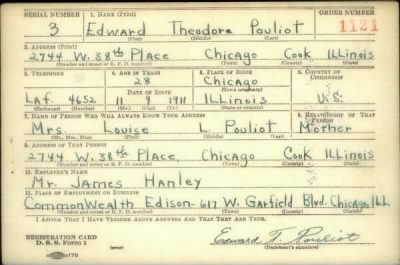 SERIAL NUMBER 1. NAME (Print) ORDER NUMBER
3 Edward Theodore Pouliot 1121
(First) (Middle) (Last)
2. ADDRESS (Print)
2744 W. 38th Place Chicago Cook ILLinois
(Number and street or R. F. D. number) (Town) (County) (State)
3. TELEPHONE 4. AGE IN YEARS 5. PLACE OF BIRTH 6. COUNTRY OF CITIZENSHIP
28 Chicago
DATE OF BIRTH (Town or county)
LAF. 4652 11 9 1911 ILLinois U.S.
(Exchange) (Number) (Mo.) (Day) (Yr.) (State or country)
7. NAME OF PERSON WHO WILL ALWAYS KNOW YOUR ADDRESS 8. RELATIONSHIP OF THAT PERSON
Mrs. Louise L Pouliot Mother
(Mr., Mrs., Miss) (First) (Middle) (Last)
9. ADDRESS OF THAT PERSON
2744 W. 38th Place, Chicago Cook ILLinois
(Number and street or R. F. D. number) (Town) (County) (State)
10. EMPLOYER'S NAME
Mr. James Hanley
11. PLACE OF EMPLOYMENT OR BUSINESS
CommonWealth Edison-617 W. Garfield Blvd. Chicago, ILL.
(Number and street or R. F. D. number) (Town) (County) (State)
I AFFIRM THAT I HAVE VERIFIED ABOVE ANSWERS AND THAT THEY ARE TRUE.
REGISTRATION CARD
D. S. S. Form 1 (over) Edward T. Pouliot
(Registrant's signature)